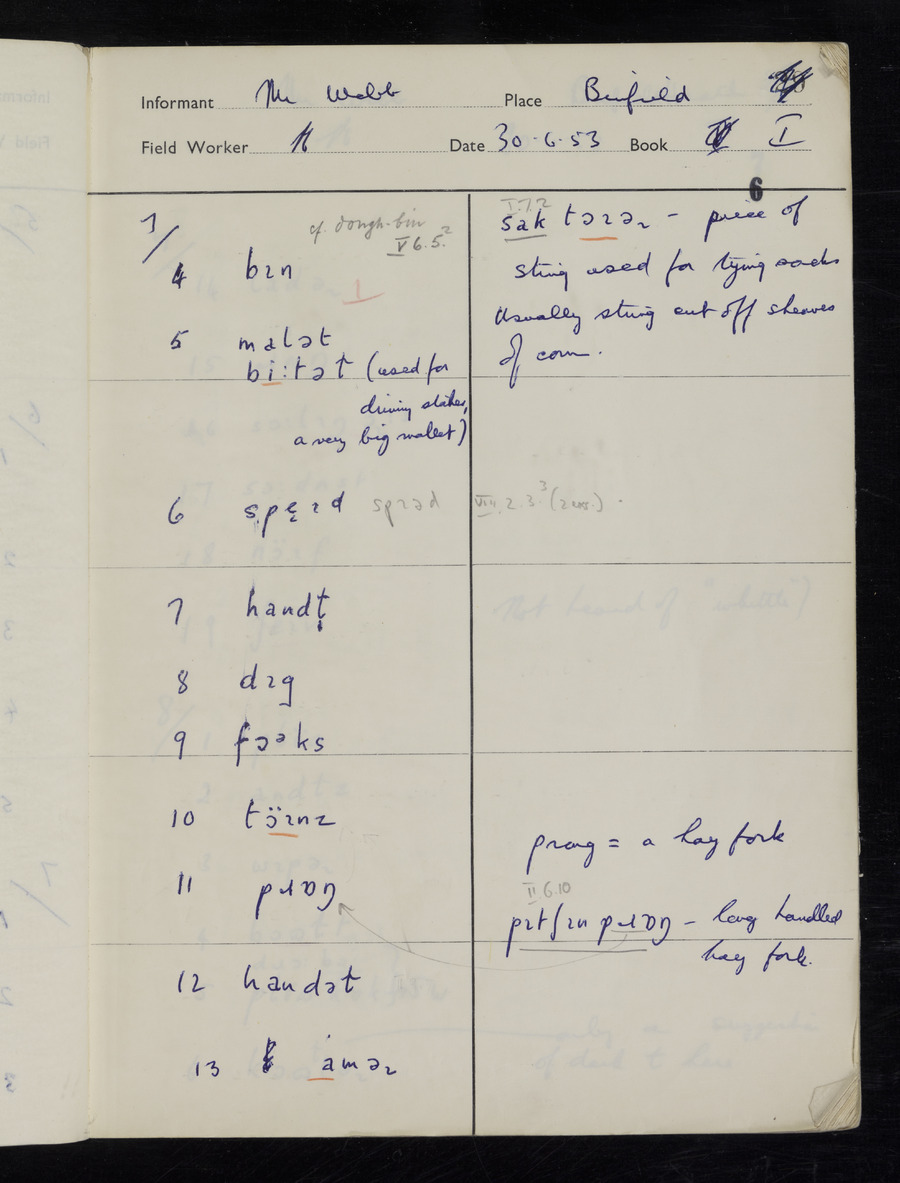 Informant Mr Webb Place Binfield
Field Worker Date 30-6-53 Book I
6
7/
cf. dough-bin
V 6.5.²
4 bɪn
I
5 malət
bi:tət (used for
driving stakes,
a very big mallet)
6 spred VIII.2.3.³
7 handt̩
8 dɪg
9 fɔəks
10 tɔ̈ɪnz
11 pɹɒŋ
12 handət
13 amə
I.7.2
sak - piece of
string used for tying sacks
Usually string cut off sheaves
of corn.
prong = a hay fork
II 6.10
pɪtʃɪn pɹɒŋ - long handled
hay fork.